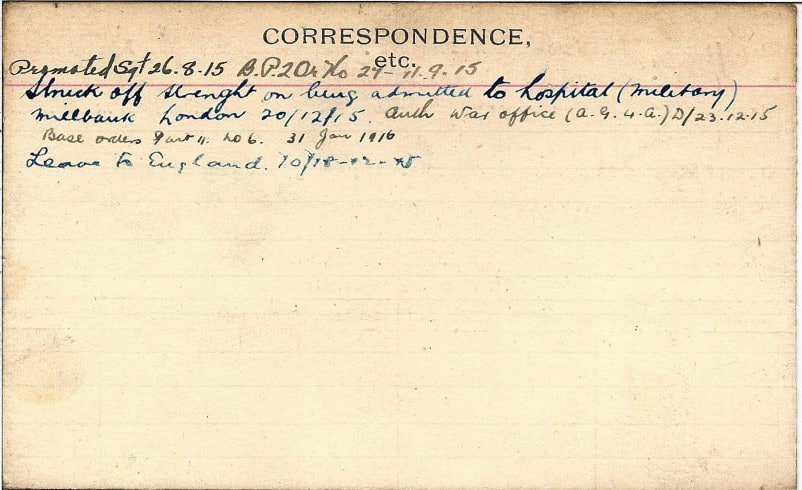 CORRESPONDENCE,
etc.
Promoted Sgt 26.8.15 B.P.2 Or No 27 - 11.9.15
Struck off strenght on being admitted to hospital (military)
millbank London 20/12/15. auth War office (A.G.4.A.) D/23.12.15
Base orders Part II. No 6. 31 Jan 1916
Leave to England. 10/18-12-15